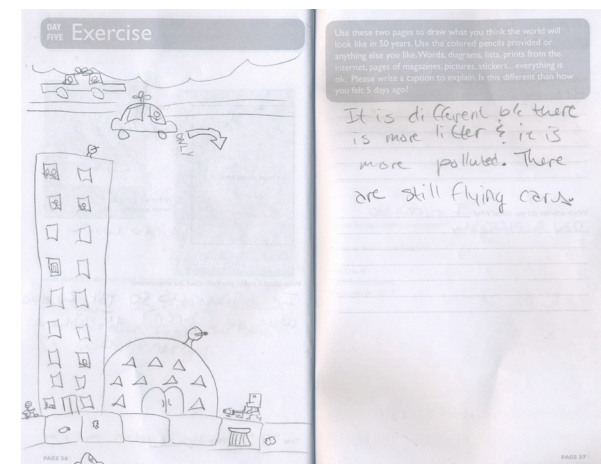 DAY
FIVE Exercise
ONLY
PAGE 56
Use these two pages to draw what you think the world will
look like in 50 years. Use the colored pencils provided or
anything else you like. Words, diagrams, lists, prints from the
internet, pages of magazines, pictures, stickers... everything is
ok. Please write a caption to explain. Is this different than how
you felt 5 days ago?
It is different b/c there
is more litter & it is
more polluted. There
are still flying cars.
PAGE 57